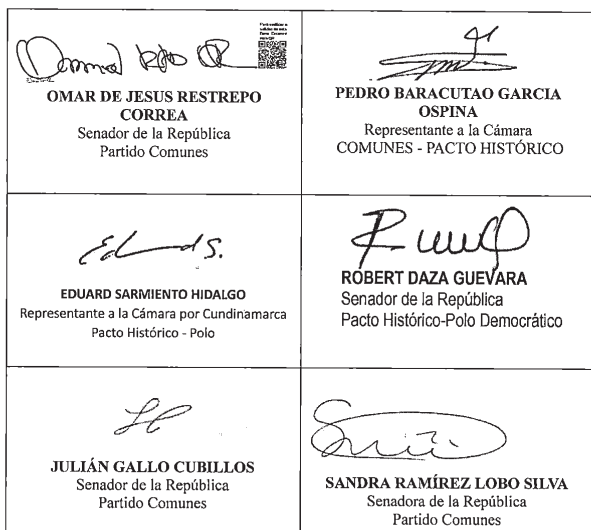 OMAR DE JESUS RESTREPO
CORREA
Senador de la República
Partido Comunes
PEDRO BARACUTAO GARCIA
OSPINA
Representante a la Cámara
COMUNES - PACTO HISTÓRICO
EDUARD SARMIENTO HIDALGO
Representante a la Cámara por Cundinamarca
Pacto Histórico - Polo
ROBERT DAZA GUEVARA
Senador de la República
Pacto Histórico-Polo Democrático
JULIÁN GALLO CUBILLOS
Senador de la República
Partido Comunes
SANDRA RAMÍREZ LOBO SILVA
Senadora de la República
Partido Comunes